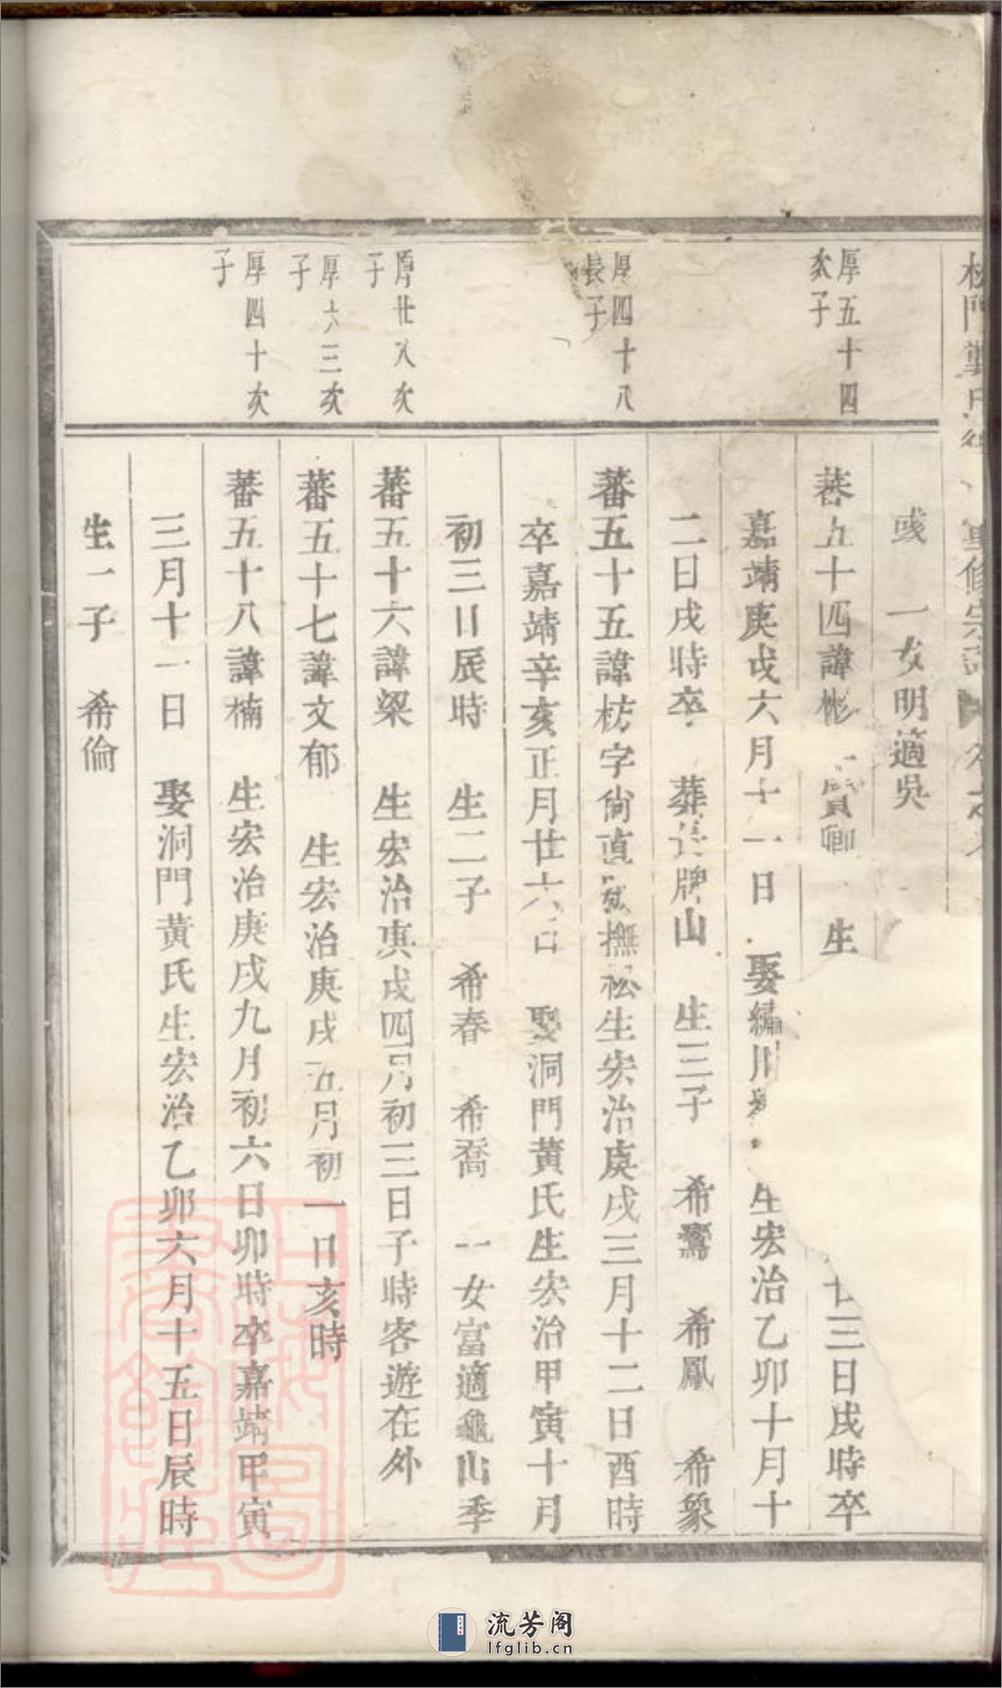 門龔氏 重修宗譜
彧　一女明適吳
厚五十四
次子
蕃五十四諱彬 賓卿 生
廿三日戌時卒
嘉靖庚戌六月十一日　娶繡川 生宏治乙卯十月十
二日戌時卒　葬 牌山　生三子　希鸞　希鳳　希象
厚四十八
長子
蕃五十五諱枋字尙直 撫 生宏治庚戌三月十二日酉時
卒嘉靖辛亥正月廿六日　娶洞門黃氏生宏治甲寅十月
初三日辰時　生二子　希春　希喬　一女富適龜山季
厚廿八次
子
蕃五十六諱梁　生宏治庚戌四月初三日子時客遊在外
厚六三次
子
蕃五十七諱文郁　生宏治庚戌五月初一日亥時
厚四十次
子
蕃五十八諱楠　生宏治庚戌九月初六日卯時卒嘉靖甲寅
三月十一日　娶洞門黃氏生宏治乙卯六月十五日辰時
生一子　希倫
流芳阁
lfglib.cn